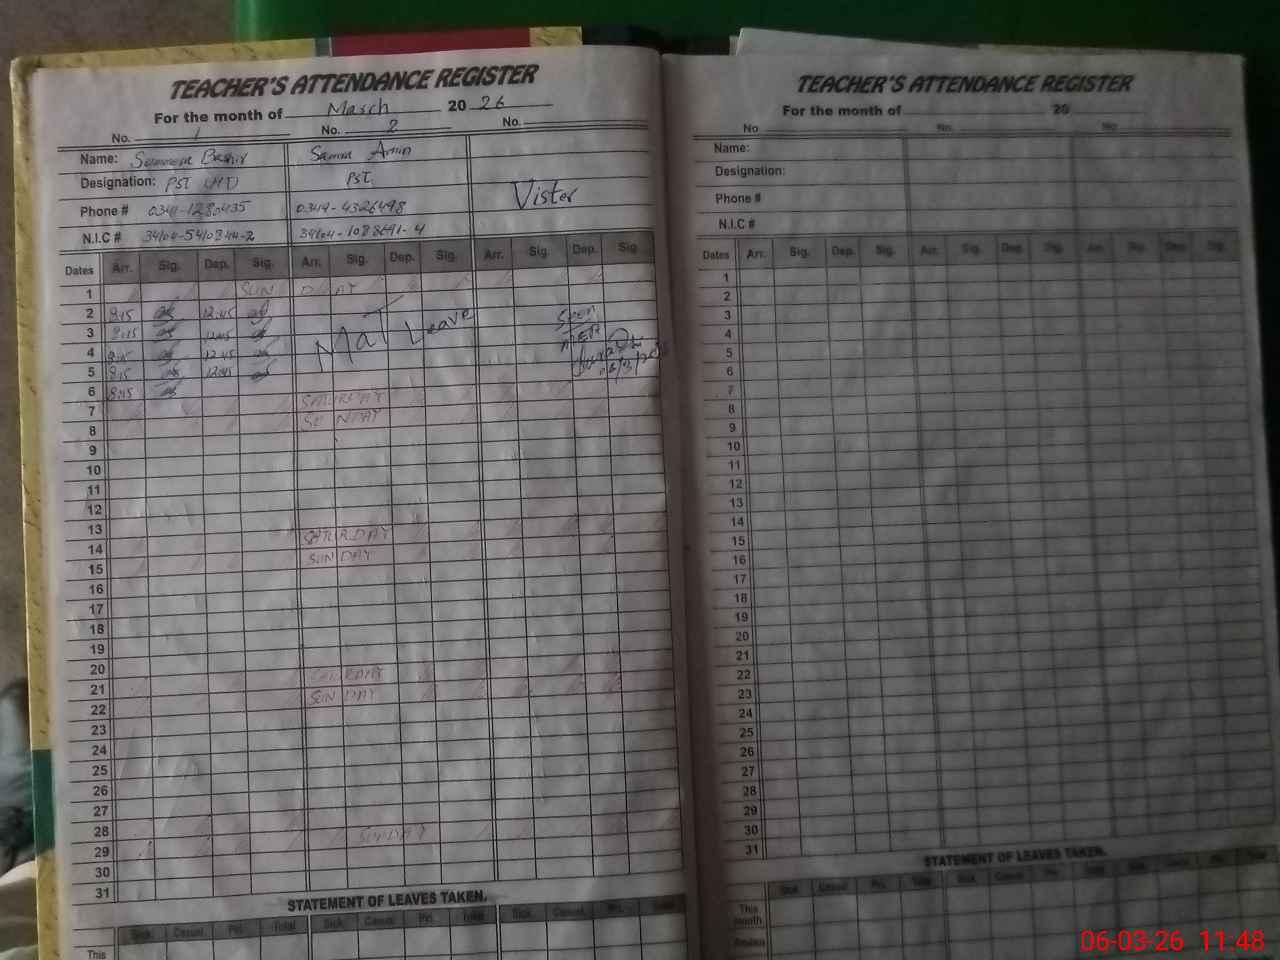 TEACHER'S ATTENDANCE REGISTER
For the month of March 20 26
No. 1 No. 2 No.
Name: Sameera Bashir Samra Amin
Designation: PST (HT) PST Vister
Phone # 0341-1280435 0349-4326498
N.I.C # 34104-5410344-2 34104-1088691-4
Dates Arr. Sig. Dep. Sig. Arr. Sig. Dep. Sig. Arr. Sig. Dep. Sig.
1 SUN DAY
2 8:15 12:45
3 8:15 12:45 Mat Leave Seen
4 8:15 12:45 MEA
5 8:15 12:45
6 8:15
7 SATURDAY
8 SUNDAY
9
10
11
12
13
14 SATURDAY
15 SUNDAY
16
17
18
19
20
21 SATURDAY
22 SUNDAY
23
24
25
26
27
28
29 SUNDAY
30
31
STATEMENT OF LEAVES TAKEN.
Sick Casual Pri. Total Sick Casual Pri. Total Sick Casual Pri. Total
This
TEACHER'S ATTENDANCE REGISTER
For the month of 20
No No. No
Name:
Designation:
Phone #
N.I.C #
Dates Arr. Sig. Dep. Sig. Arr. Sig. Dep. Sig. Arr. Sig. Dep. Sig.
1
2
3
4
5
6
7
8
9
10
11
12
13
14
15
16
17
18
19
20
21
22
23
24
25
26
27
28
29
30
31
STATEMENT OF LEAVES TAKEN.
Sick Casual Pri. Total Sick Casual Pri. Total Sick Casual Pri. Total
This
month
06-03-26 11:48